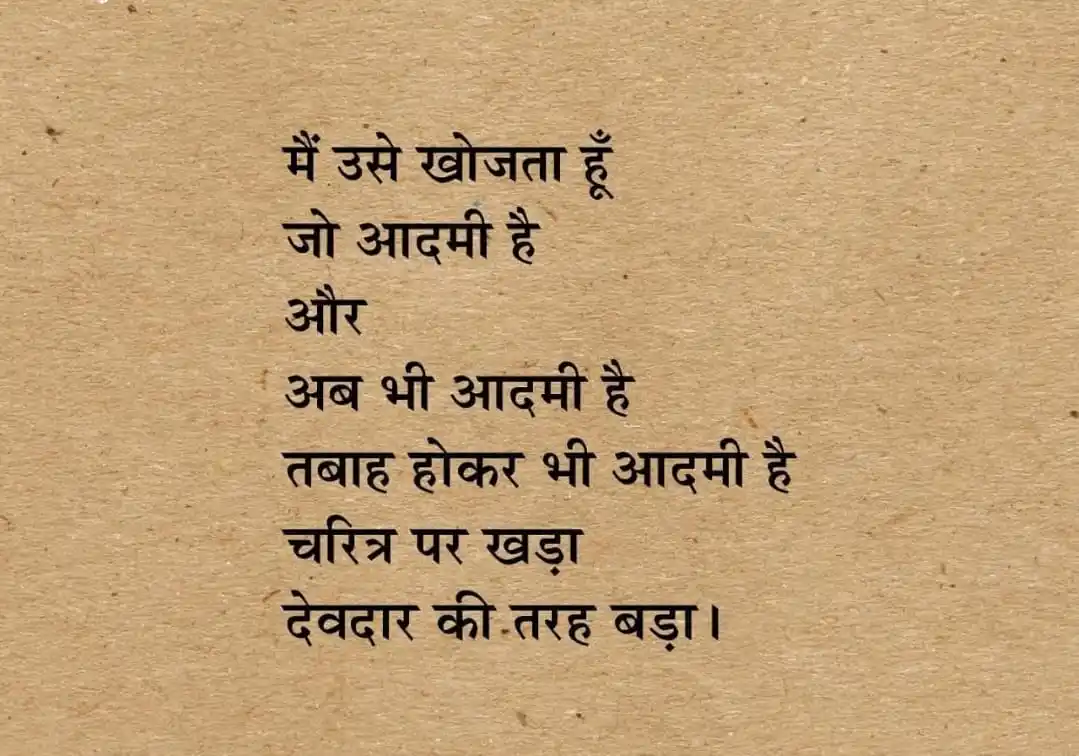 मैं उसे खोजता हूँ
जो आदमी है
और
अब भी आदमी है
तबाह होकर भी आदमी है
चरित्र पर खड़ा
देवदार की तरह बड़ा।